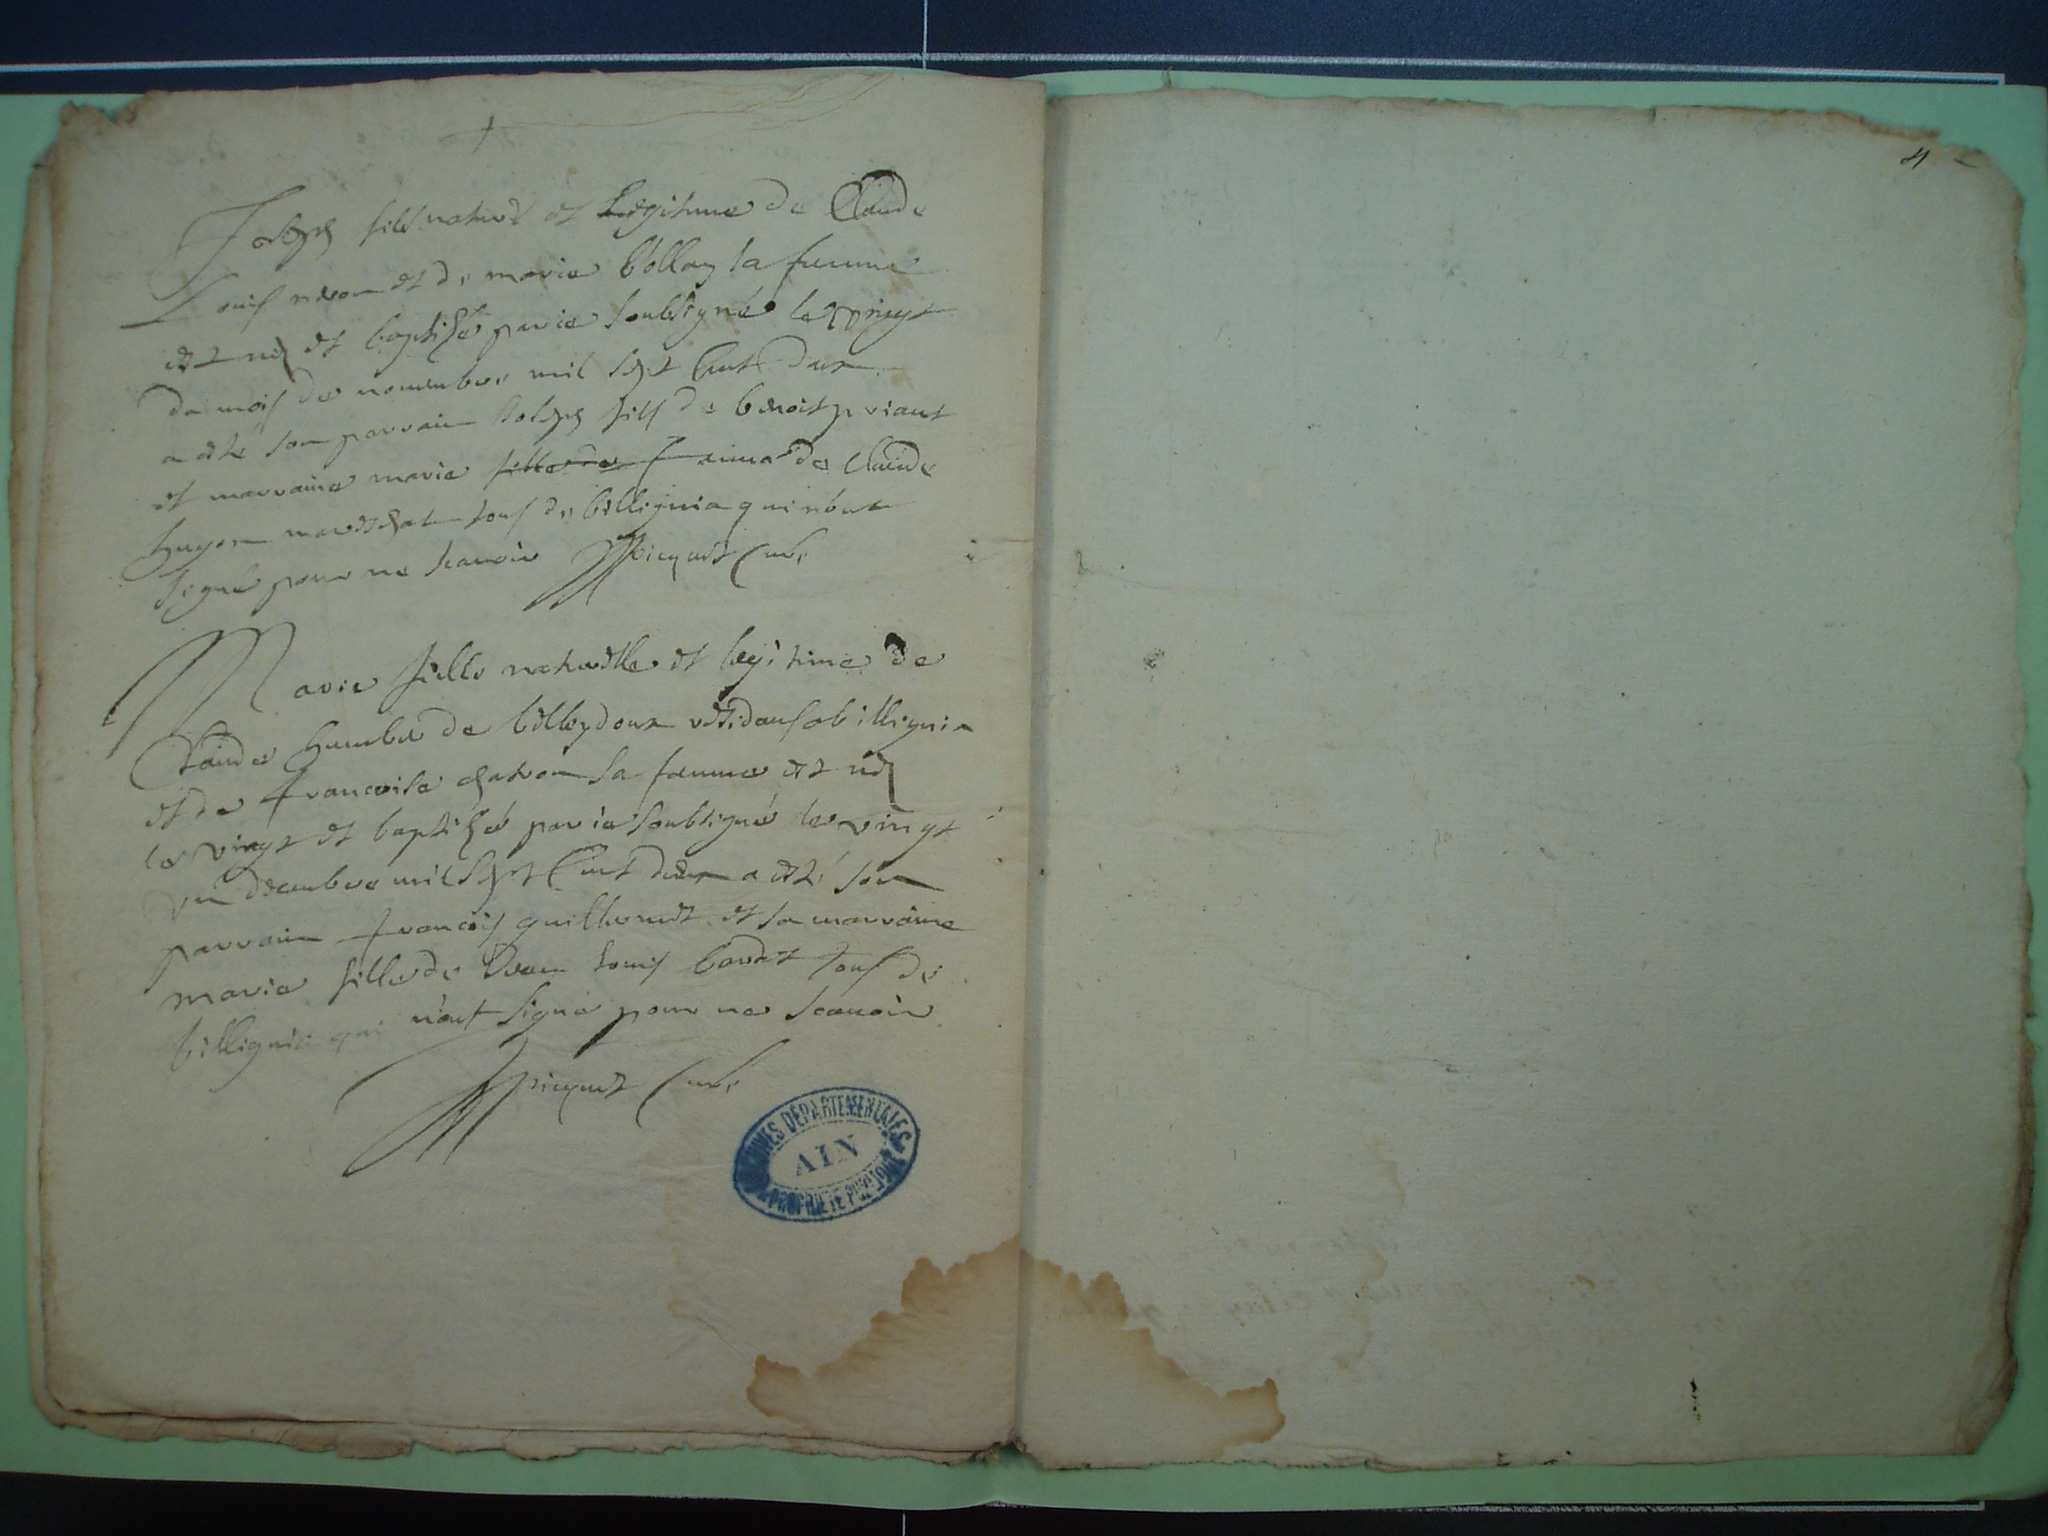 Joseph fils naturel et Legitime de Claude
Louis et de marie bollay sa femme
est né et baptisé par ie soubsigné le vingt
du mois de novembre mil sept Cent deux
a esté son parrain Joseph fils de benoist
et marraine marie fille de femme de Claude
tous de billignia qui n'ont
signé pour ne scavoir picquet Curé
Marie fille naturelle et legitime de
Claude humber de billignia
et de francoise sa femme est né
le vingt et baptisé par ie soubsigné le vingt
un decembre mil sept Cent deux a esté son
parrain francois et sa marraine
marie fille de Jean Louis tous de
billignia qui n'ont signé pour ne scavoir
picquet Curé
ARCHIVES DÉPARTEMENTALES
AIN
PROPRIÉTÉ PUBLIQUE